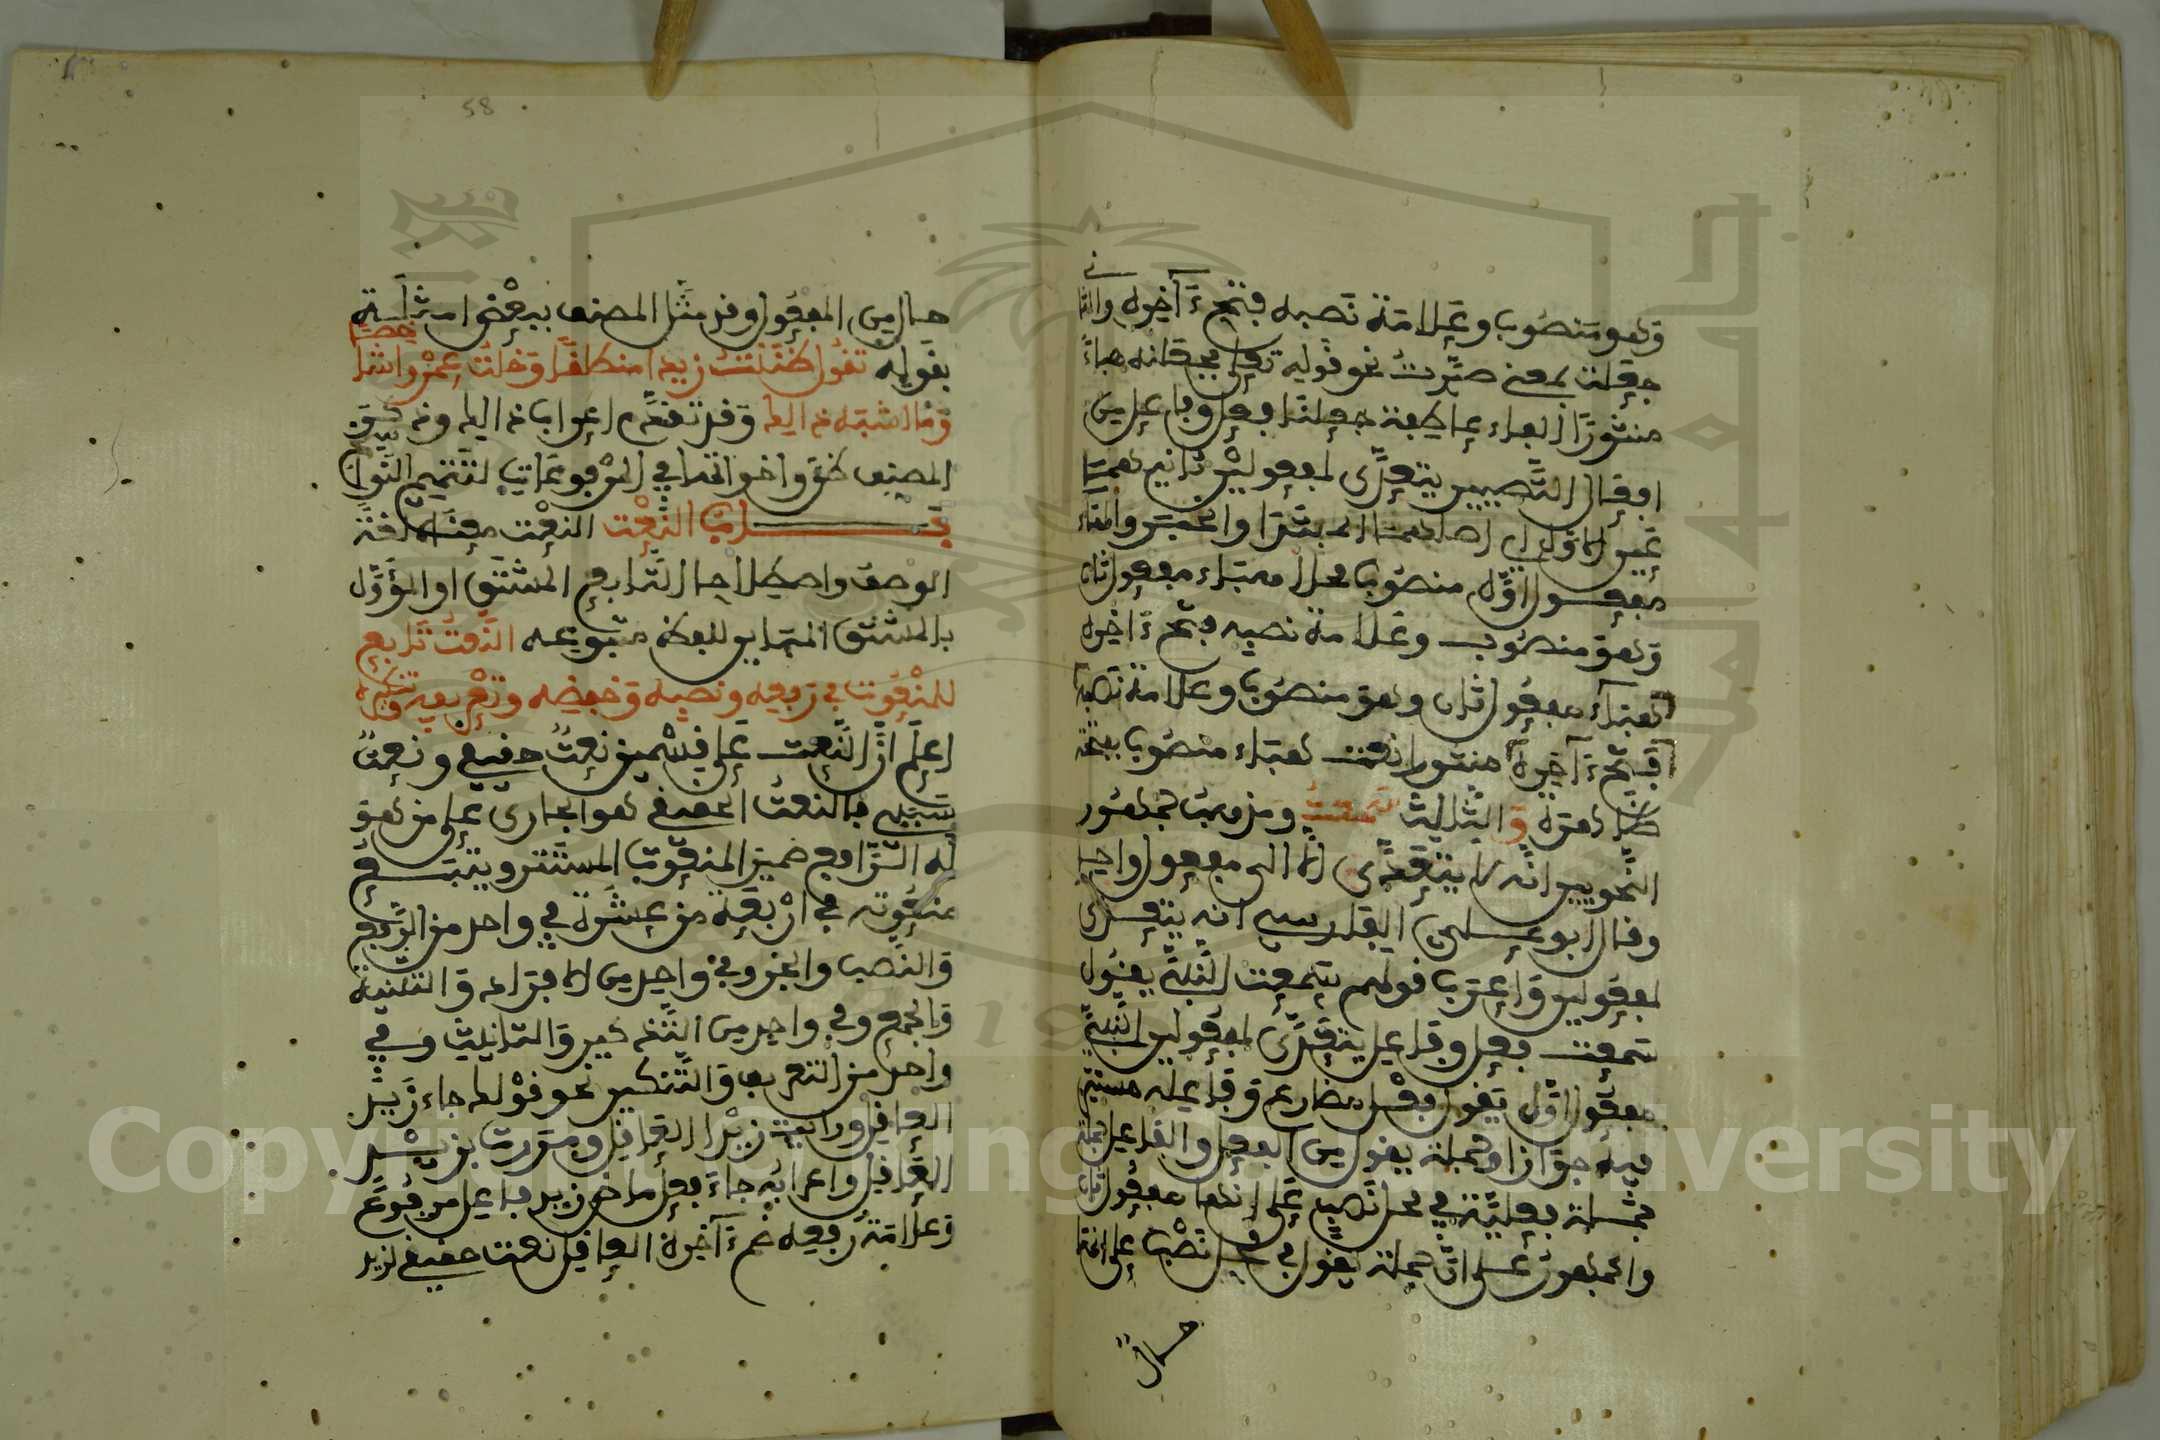 وهو منصوب وعلامة نصبه فتح ءاخره والثاني
جعلت بمعنى صيرت نحو قوله تعلى فجعلناه هباء
منثورا الفاء عاطفة جعلنا فعل وفاعل من
افعال التصيير يتعدى لمفعولين ثانيهما
غير الاول اصلهما المبتدا والخبر والهاء
مفعول اول منصوب محلا هباء مفعول ثان
وهو منصوب وعلامة نصبه فتح ءاخره
هباء مفعول ثان وهو منصوب وعلامة نصبه
فتح ءاخره منثورا نعت لهباء منصوب بفتحة
ظاهرة والثالث سمعت ومذهب جمهور
النحويين انه لا يتعدى الا الى مفعول واحد
وقال ابو علي الفارسي انه يتعدى
لمفعولين واعرب قولهم سمعت النبي يقول
سمعت فعل وفاعل يتعدى لمفعولين النبي
مفعول اول يقول فعل مضارع وفاعله مستتر
فيه جوازا وجملة يقول من الفعل والفاعل جملة
جملة فعلية في محل نصب على انها مفعول ثان
والجمهور على ان جملة يقول في محل نصب على انها
حال
58
حال من المفعول وقد مثل المصنف ببعض امثلة
بقوله تقول ظننت زيدا منطلقا وخلت عمرا شاخصا
وما اشبه ذلك وقد تقدم اعراب ذلك وذكر
المصنف ظن واخواتها في المرفوعات لتتميم النواسخ
باب النعت النعت معناه لغة
الوصف واصطلاحا التابع المشتق او المؤول
بالمشتق المباين للفظ متبوعه النعت تابع
للمنعوت في رفعه ونصبه وخفضه وتعريفه وتنكيره
اعلم ان النعت على قسمين نعت حقيقي ونعت
سببي فالنعت الحقيقي هو الجاري على من هو
له الرافع ضمير المنعوت المستتر ويتبع
منعوته في اربعة من عشرة في واحد من الرفع
والنصب والجر وفي واحد من الافراد والتثنية
والجمع وفي واحد من التذكير والتانيث وفي
واحد من التعريف والتنكير نحو قولك جاء زيد
العاقل ورايت زيدا العاقل ومررت بزيد
العاقل واعرابه جاء فعل ماض زيد فاعل مرفوع
وعلامة رفعه ضم ءاخره العاقل نعت حقيقي لزيد
Copyright © King Saud University